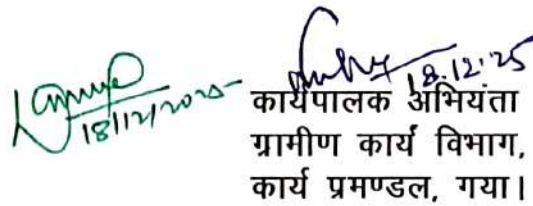 18/12/2025
18.12.25
कार्यपालक अभियंता
ग्रामीण कार्य विभाग,
कार्य प्रमण्डल, गया।